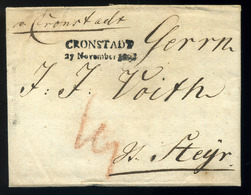 Cronstadt
Herrn
CRONSTADT
27 November
J. J. Voith
Steyr